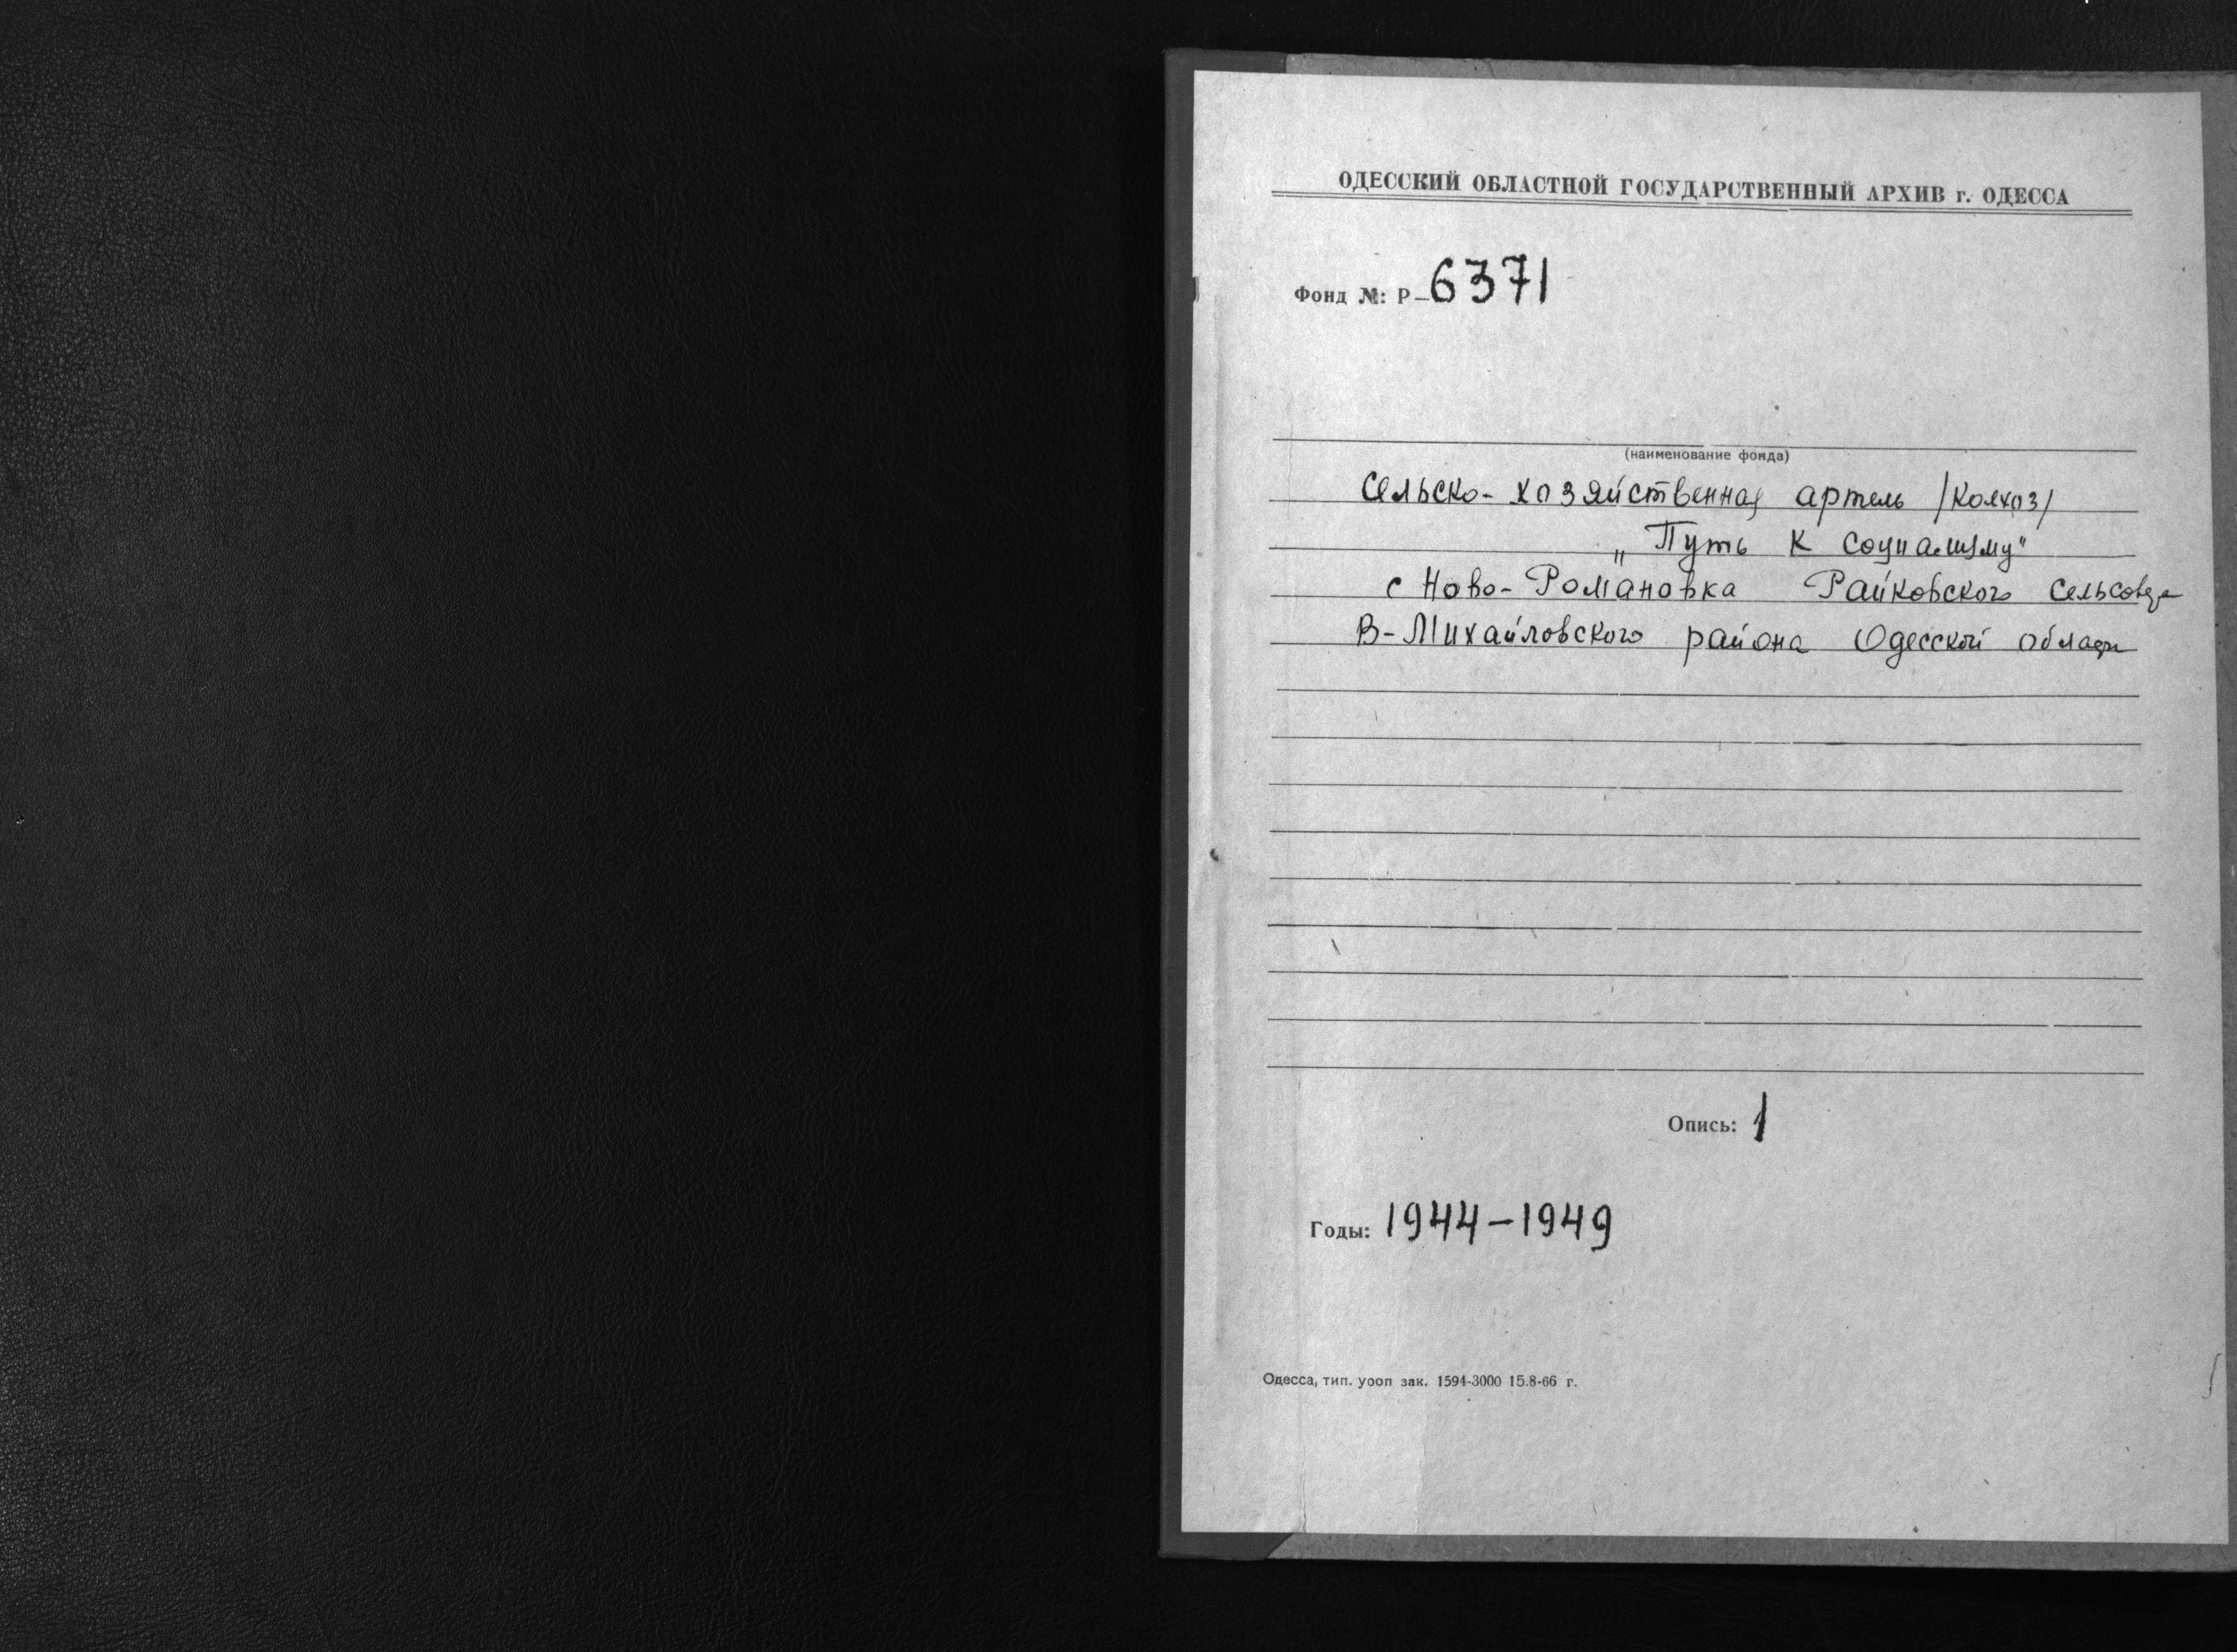 ОДЕССКИЙ ОБЛАСТНОЙ ГОСУДАРСТВЕННЫЙ АРХИВ г. ОДЕССА
Фонд №: Р-6371
(наименование фонда)
Сельско-хозяйственная артель /колхоз/
„Путь к социализму"
с Ново-Романовка Райковского сельсовета
В-Михайловского района Одесской области
Опись: 1
Годы: 1944-1949
Одесса, тип. уооп зак. 1594-3000 15.8-66 г.